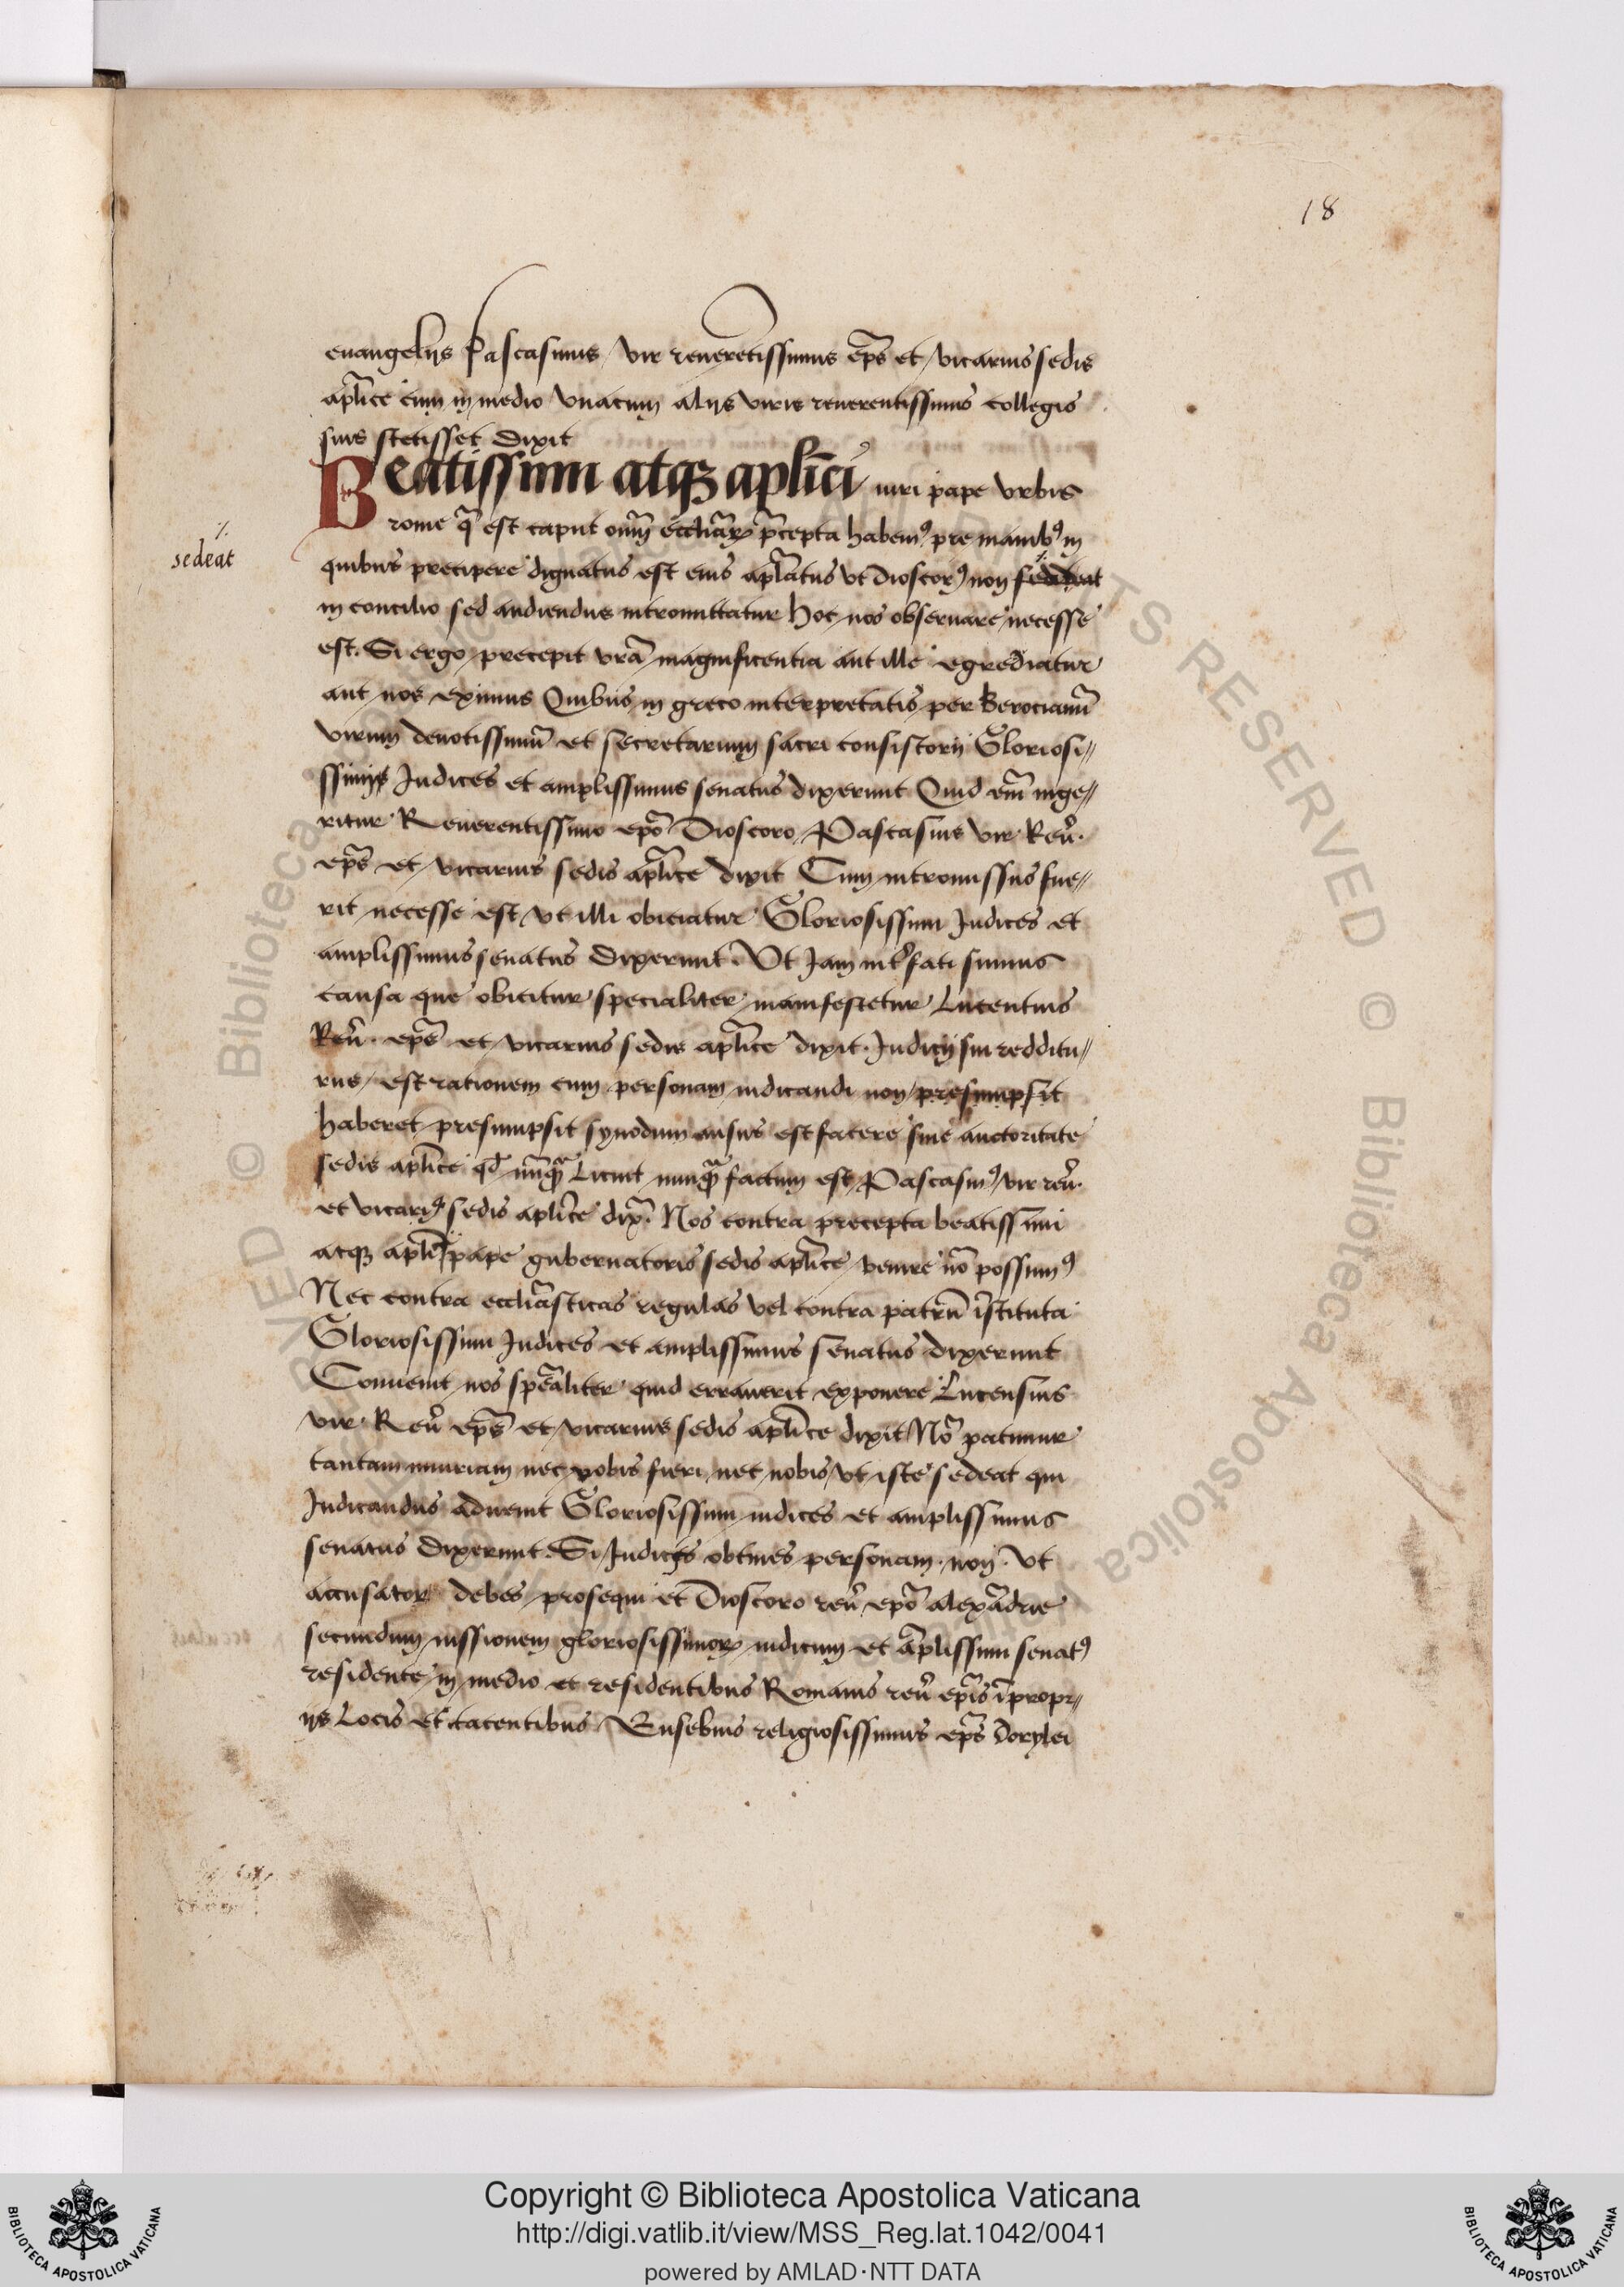 18
euangelijs Pascasinus vir reueretissimus ep̃s et vicarius sedis
aplĩce cum in medio vnacum alijs viris reuerentissimis collegis
suis stetisset dixit
Beatissimi atqꝫ aplĩci uiri pape vrbis
rome q̃ est caput oĩm eccliãꝝ p̃cepta habemꝰ pre manibꝰ in
sedeat
quibus precipere dignatus est eius aplãtus vt Dioscorꝰ non
in concilio sed audiendus intromittatur hoc nos obseruare necesse
est. Si ergo precepit vrã magnificentia aut ille egrediatur
aut nos eximus Quibus in greco interpretatis per Berocianũ
virum deuotissimũ et secretarium sacri consistorij Gloriosi〃
ssimi Iudices et amplissimus senatus dixerunt Quid em̃ inge〃
ritur Reuerentissimo ep̃o Dioscoro Pascasius vir Reũ.
ep̃s et vicarius sedis aplĩce dixit Cum intromissus fue〃
rit necesse est vt illi obiciatur Gloriosissimi Iudices et
amplissimus senatus dixerunt. Vt Jam int̾fati sumus
causa que obicitur specialiter manifestetur Lucentius
Reũ. ep̃s et vicarius sedis aplĩce dixit. Iudicij sui redditu〃
rus est rationem cum personam iudicandi non presumpsit
haberet presumpsit synodum ausus est facere sine auctoritate
sedis aplĩce qđ nũqᷓ Licuit nunqᷓ factum est Pascasinꝰ vir reũ.
et vicariꝰ sedis aplĩce dix̃. Nos contra precepta beatissimi
atqꝫ aplĩ pape gubernatoris sedis aplĩce venire nõ possumꝰ
Nec contra eccliãsticas regulas vel contra patrũ ĩstituta
Gloriosissimi Iudices et amplissimus senatus dixerunt
Conuenit nos speãliter quid errauerit exponere Lucensius
vir Reũ ep̃s et vicarius sedis aplĩce dixit Nõ patimur
tantam iniuriam nec vobis fieri nec nobis vt iste sedeat qui
Iudicandus aduenit Gloriosissimi iudices et amplissimus
senatus dixerunt. Si Iudicis obtines personam. non. vt
accusator debes prosequi et Dioscoro reũ ep̃o alexãdrie
secundum iussionem gloriosissimoꝝ iudicum et ãplissimi senatꝰ
residente in medio et residentibus Romanis reũ ep̃is ĩ propr〃
ijs Locis et tacentibus Eusebius religiosissimus ep̃s Dorylei
Copyright © Biblioteca Apostolica Vaticana
http://digi.vatlib.it/view/MSS_Reg.lat.1042/0041
powered by AMLAD·NTT DATA